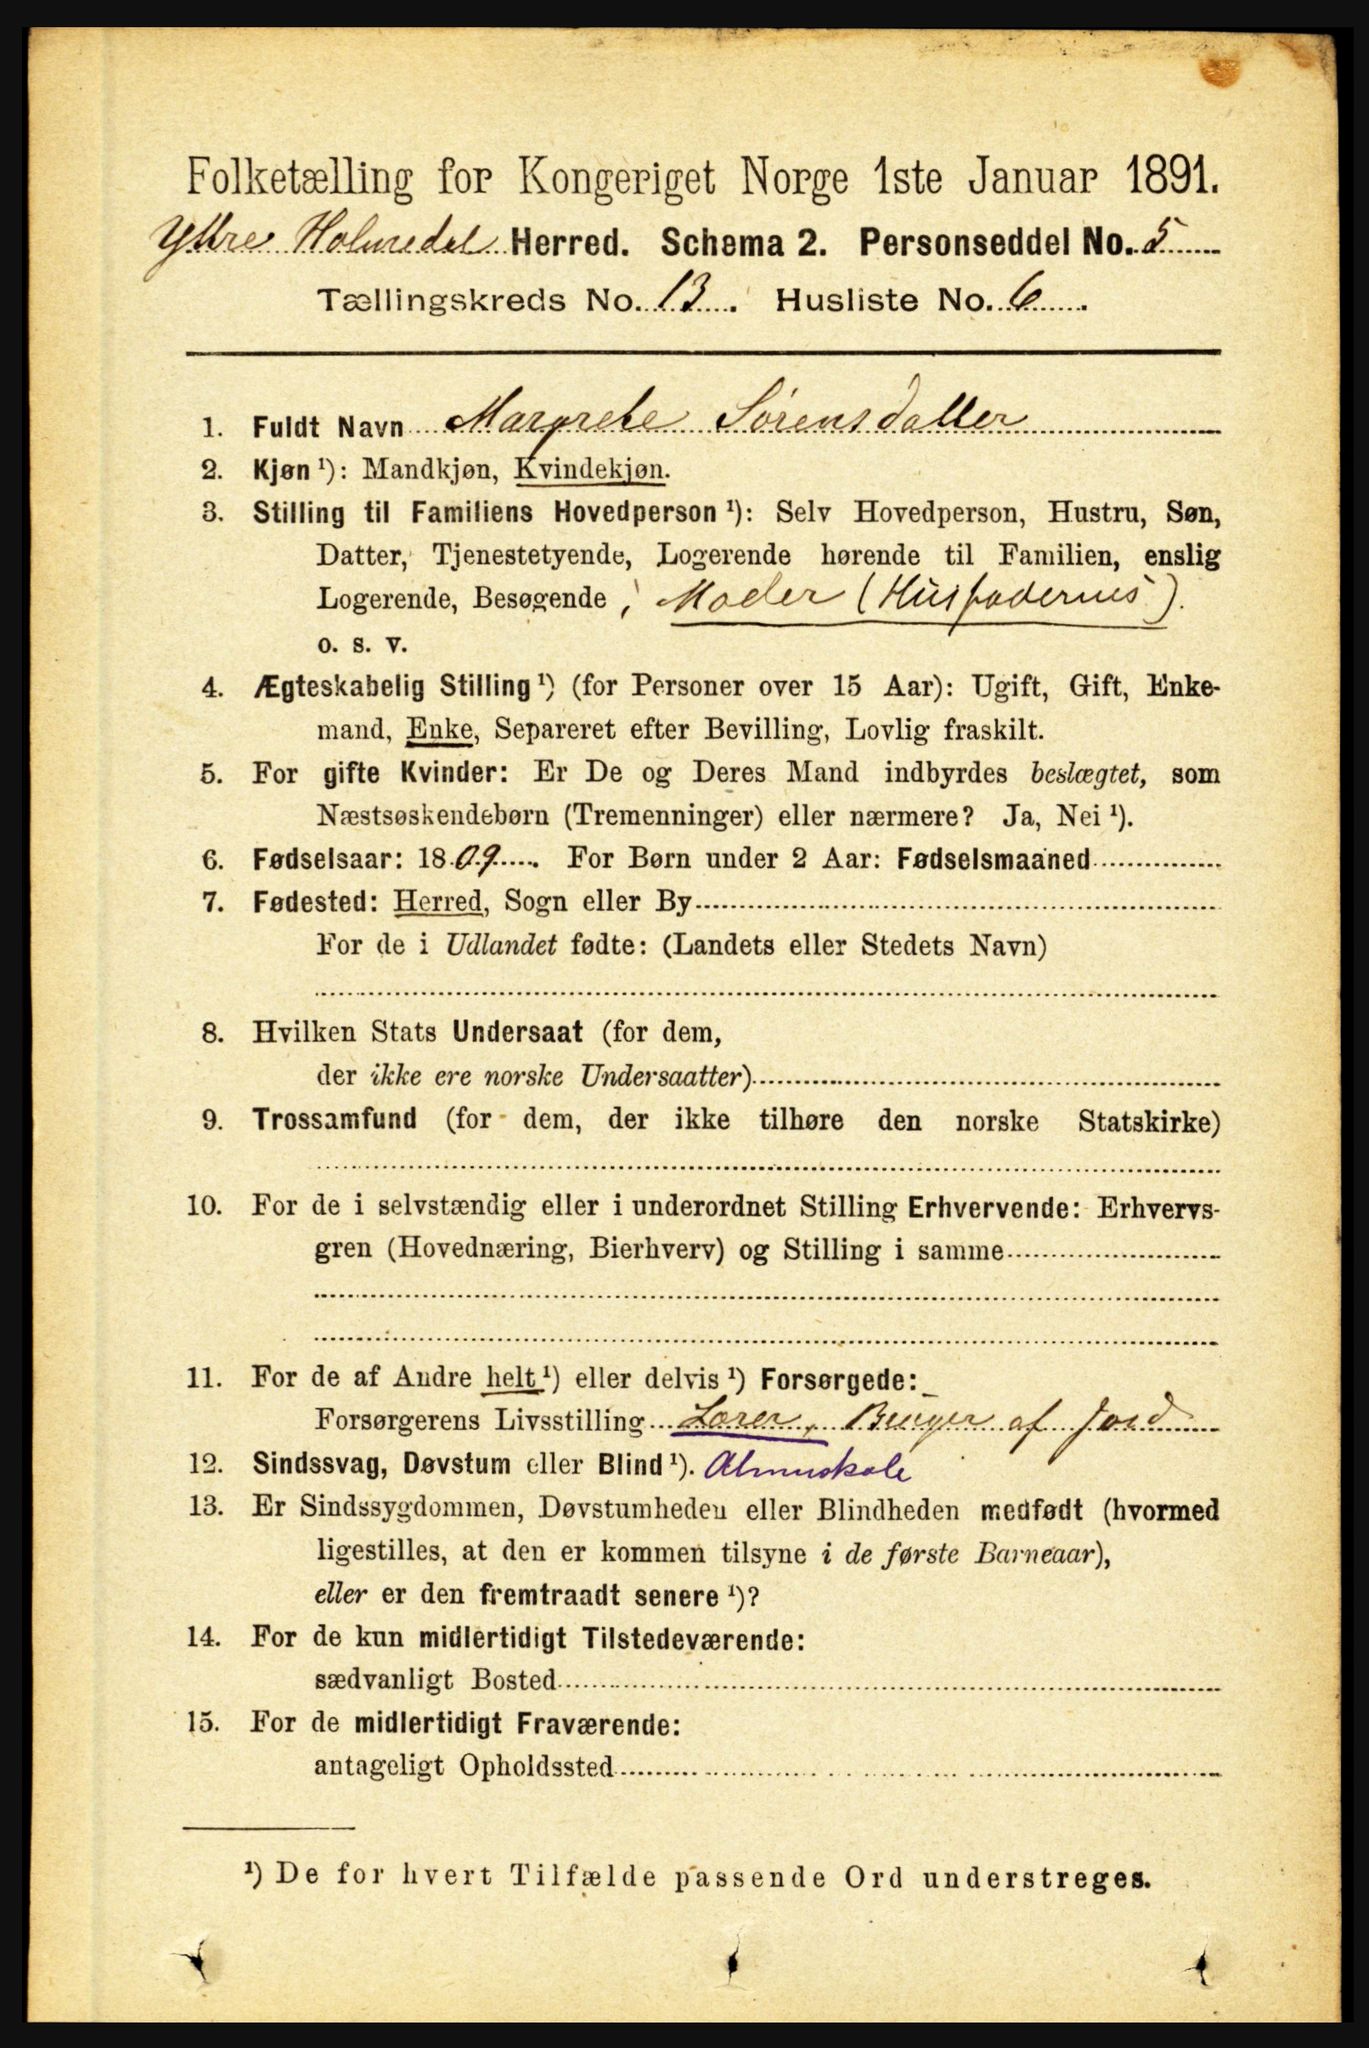 Folketælling for Kongeriget Norge 1ste Januar 1891.
Yttre Holmedal Herred. Schema 2. Personseddel No. 5
Tællingskreds No. 13. Husliste No. 6.
1. Fuldt Navn Margrete Sørensdatter
2. Kjøn ¹): Mandkjøn, Kvindekjøn.
3. Stilling til Familiens Hovedperson ¹): Selv Hovedperson, Hustru, Søn,
Datter, Tjenestetyende, Logerende hørende til Familien, enslig
Logerende, Besøgende, Moder (Husfaderens).
o. s. v.
4. Ægteskabelig Stilling ¹) (for Personer over 15 Aar): Ugift, Gift, Enke-
mand, Enke, Separeret efter Bevilling, Lovlig fraskilt.
5. For gifte Kvinder: Er De og Deres Mand indbyrdes beslægtet, som
Næstsøskendebørn (Tremenninger) eller nærmere? Ja, Nei ¹).
6. Fødselsaar: 1809. For Børn under 2 Aar: Fødselsmaaned
7. Fødested: Herred, Sogn eller By
For de i Udlandet fødte: (Landets eller Stedets Navn)
8. Hvilken Stats Undersaat (for dem,
der ikke ere norske Undersaatter)
9. Trossamfund (for dem, der ikke tilhøre den norske Statskirke)
10. For de i selvstændig eller i underordnet Stilling Erhvervende: Erhvervs-
gren (Hovednæring, Bierhverv) og Stilling i samme
11. For de af Andre helt ¹) eller delvis ¹) Forsørgede:
Forsørgerens Livsstilling Lærer, Bruger af Jord
12. Sindssvag, Døvstum eller Blind ¹). Almuskole
13. Er Sindssygdommen, Døvstumheden eller Blindheden medfødt (hvormed
ligestilles, at den er kommen tilsyne i de første Barneaar),
eller er den fremtraadt senere ¹)?
14. For de kun midlertidigt Tilstedeværende:
sædvanligt Bosted
15. For de midlertidigt Fraværende:
antageligt Opholdssted
¹) De for hvert Tilfælde passende Ord understreges.